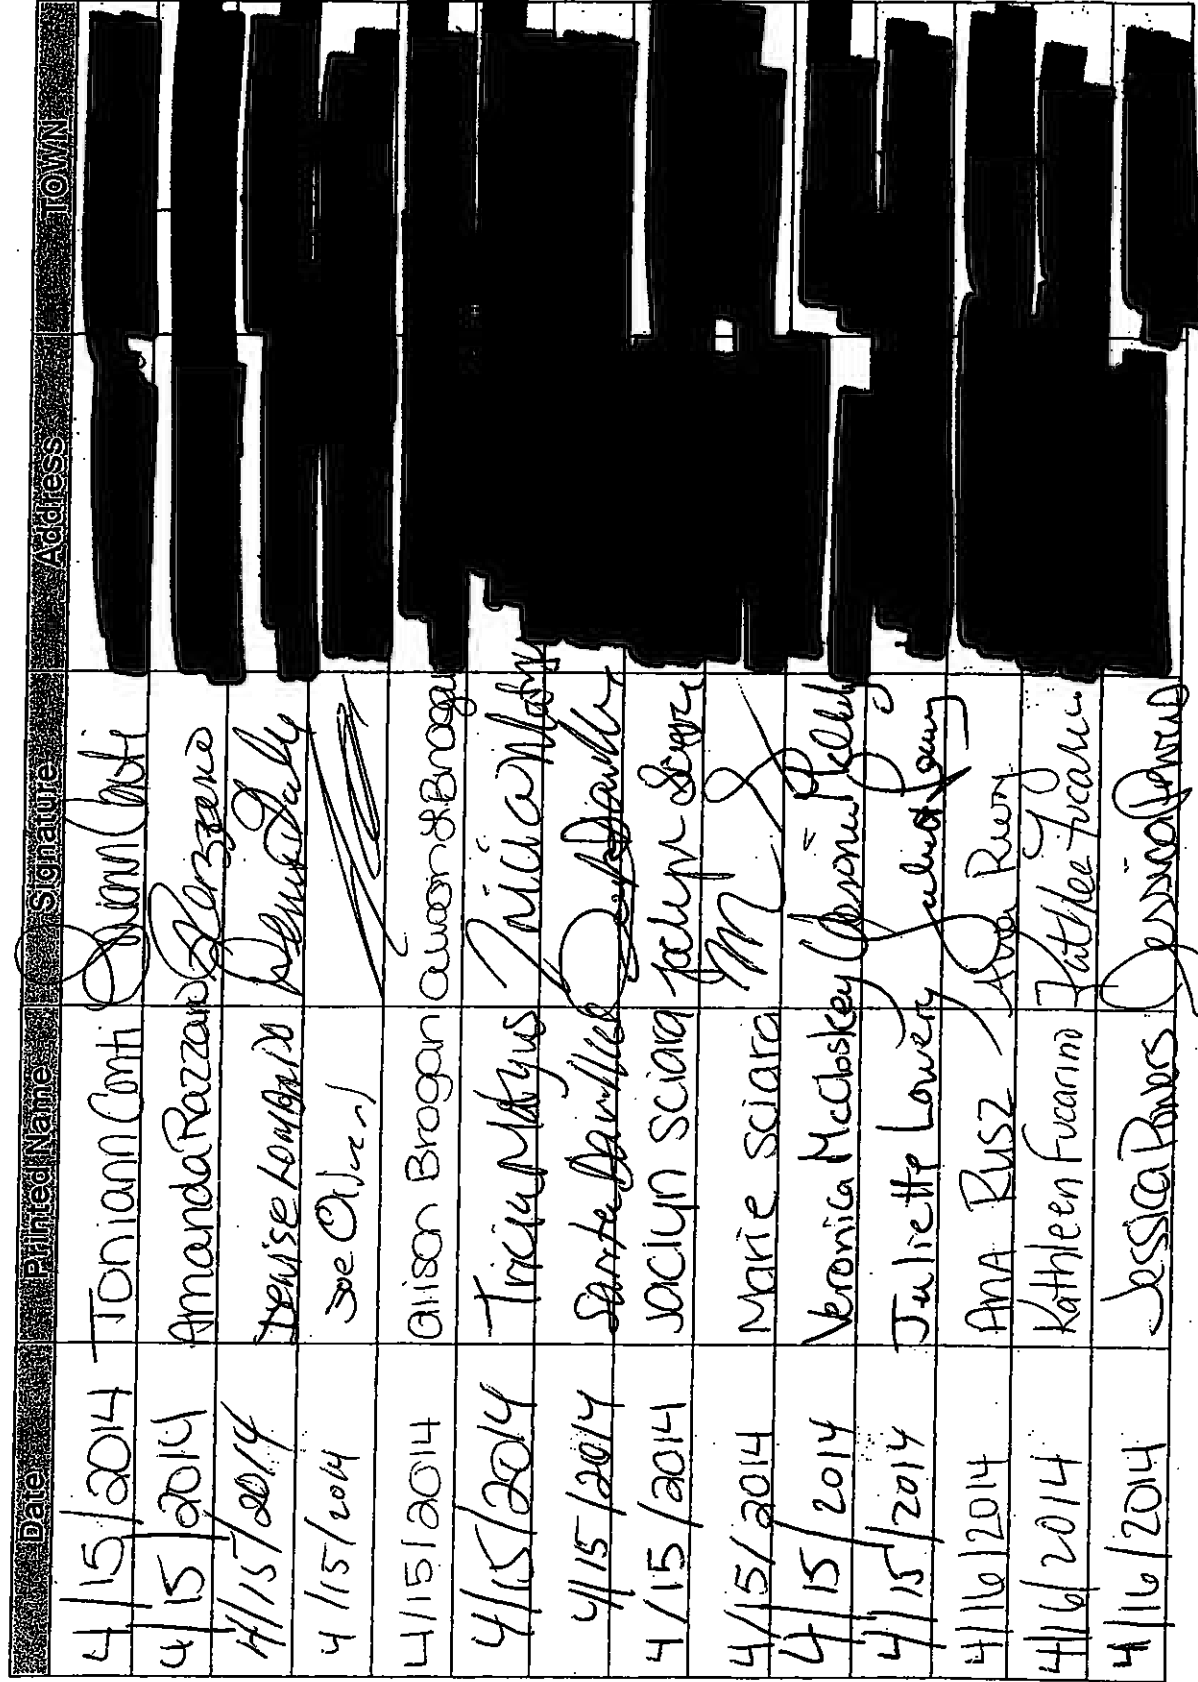 Date Printed Name Signature Address TOWN
4/15/2014 Toniann Conti Toniann Conti
4/15/2014 Amanda Razzano
4/15/2014 Denise
4/15/2014 Joe
4/15/2014 Allison Brogan Allison Brogan
4/15/2014 Tricia Matyus Tricia
4/15/2014
4/15/2014 Jaclyn Sciara Jaclyn
4/15/2014 Marie Sciara
4/15/2014 Veronica McCloskey Veronica
4/15/2014 Juliette Lowery Juliette Lowery
4/16/2014 Ana Rusz Ana
4/16/2014 Kathleen Fucarino Kathleen Fucarino
4/16/2014 Jessica Powers Jessica Powers